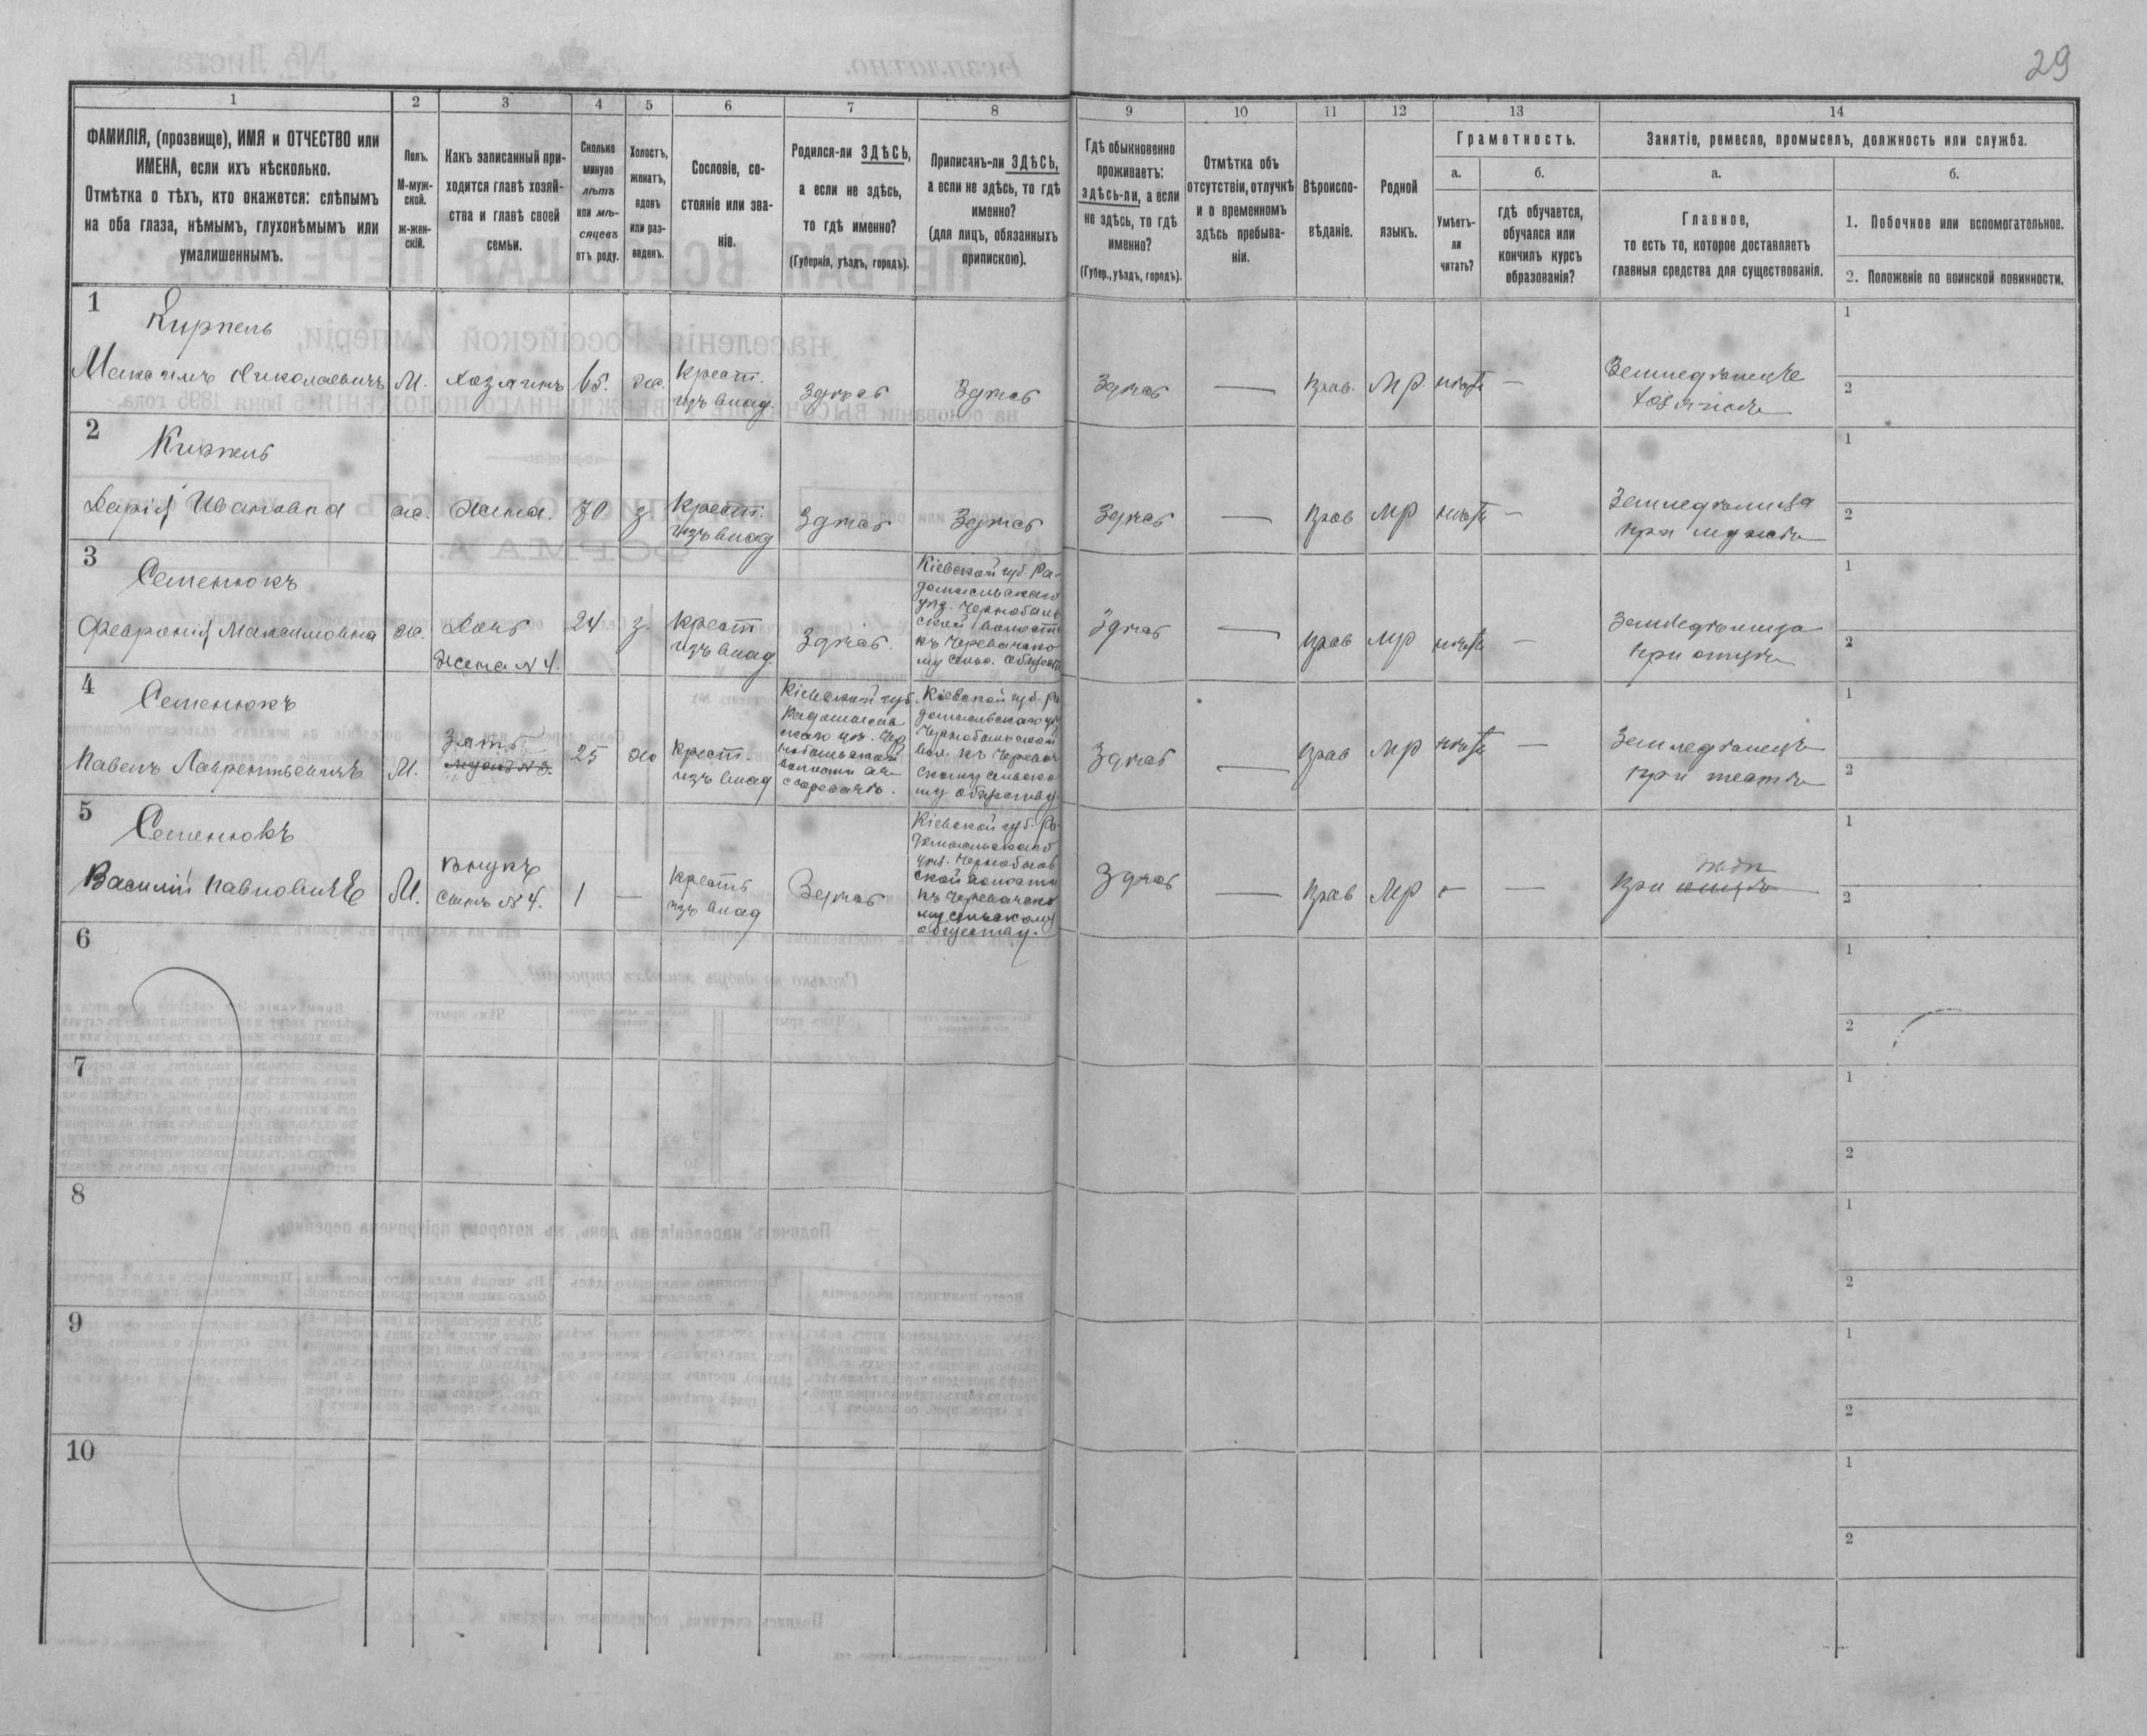 29
1 2 3 4 5 6 7 8 9 10 11 12 13 14
ФАМИЛІЯ, (прозвище), ИМЯ и ОТЧЕСТВО или
ИМЕНА, если ихъ нѣсколько.
Отмѣтка о тѣхъ, кто окажется: слѣпымъ
на оба глаза, нѣмымъ, глухонѣмымъ или
умалишеннымъ.
Полъ.
М-муж-
ской.
ж-жен-
скій.
Какъ записанный при-
ходится главѣ хозяй-
ства и главѣ своей
семьи.
Сколько
минуло
лѣтъ
или мѣ-
сяцевъ
отъ роду.
Холостъ,
женатъ,
вдовъ
или раз-
веденъ.
Сословіе, со-
стояніе или зва-
ніе.
Родился-ли ЗДѢСЬ,
а если не здѣсь,
то гдѣ именно?
(Губернія, уѣздъ, городъ).
Приписанъ-ли ЗДѢСЬ,
а если не здѣсь, то гдѣ
именно?
(для лицъ, обязанныхъ
припискою).
Гдѣ обыкновенно
проживаетъ:
здѣсь-ли, а если
не здѣсь, то гдѣ
именно?
(Губер., уѣздъ, городъ).
Отмѣтка объ
отсутствіи, отлучкѣ
и о временномъ
здѣсь пребыва-
ніи.
Вѣроиспо-
вѣданіе.
Родной
языкъ.
Грамотность.
а.
Умѣетъ-
ли
читать?
б.
гдѣ обучается,
обучался или
кончилъ курсъ
образованія?
Занятіе, ремесло, промыселъ, должность или служба.
а.
Главное,
то есть то, которое доставляетъ
главныя средства для существованія.
б.
1. Побочное или вспомогательное.
2. Положеніе по воинской повинности.
1
Кирпель
Максимъ Николаевичъ
М.
Хозяинъ
65.
ж.
крест.
изъ влад.
Здѣсь
Здѣсь
Здѣсь
—
прав.
МР.
нѣтъ
—
Земледѣлецъ
хозяинъ
1
2
2
Кирпель
Дарія Ивановна
ж.
Жена.
70
з.
Крест.
изъ влад
Здѣсь
Здѣсь
Здѣсь
—
прав
МР
нѣтъ
—
Земледѣлица
при мужѣ
1
2
3
Семенюкъ
Февронія Максимовна
ж.
Дочь
Жена N 4.
24
з.
крест
изъ влад
Здѣсь.
Кіевской губ. Ра-
домысльскаго
уѣз. Чернобыль
ской волости
къ Черевачско
му сельс. обществ
Здѣсь
—
прав
МР
нѣтъ
—
Земледѣлица
при отцѣ
1
2
4
Семенюкъ
Павелъ Лаврентьевичъ
М.
Зять
мужъ N 3.
25
ж
крест.
изъ влад
Кіевской губ.
Радомысль
скаго уѣ. Чер
нобыльской
волости
Кіевской губ. Ра
домысльскаго уѣ
Чернобыльской
вол. къ Черевач
скому сельско
му обществу
Здѣсь
—
прав
МР
нѣтъ
—
Земледѣлецъ
при тестѣ
1
2
5
Семенюкъ
Василій Павловичъ
М.
Внукъ
сынъ N 4.
1
—
крест
изъ влад
Здѣсь
Кіевской губ. Ра
домысльскаго
уѣз. Чернобыль
ской волости
къ Черевачско
му сельскому
обществу.
Здѣсь
—
прав
МР
—
—
при отцѣ
дѣдѣ
1
2
6
1
2
7
1
2
8
1
2
9
1
2
10
1
2